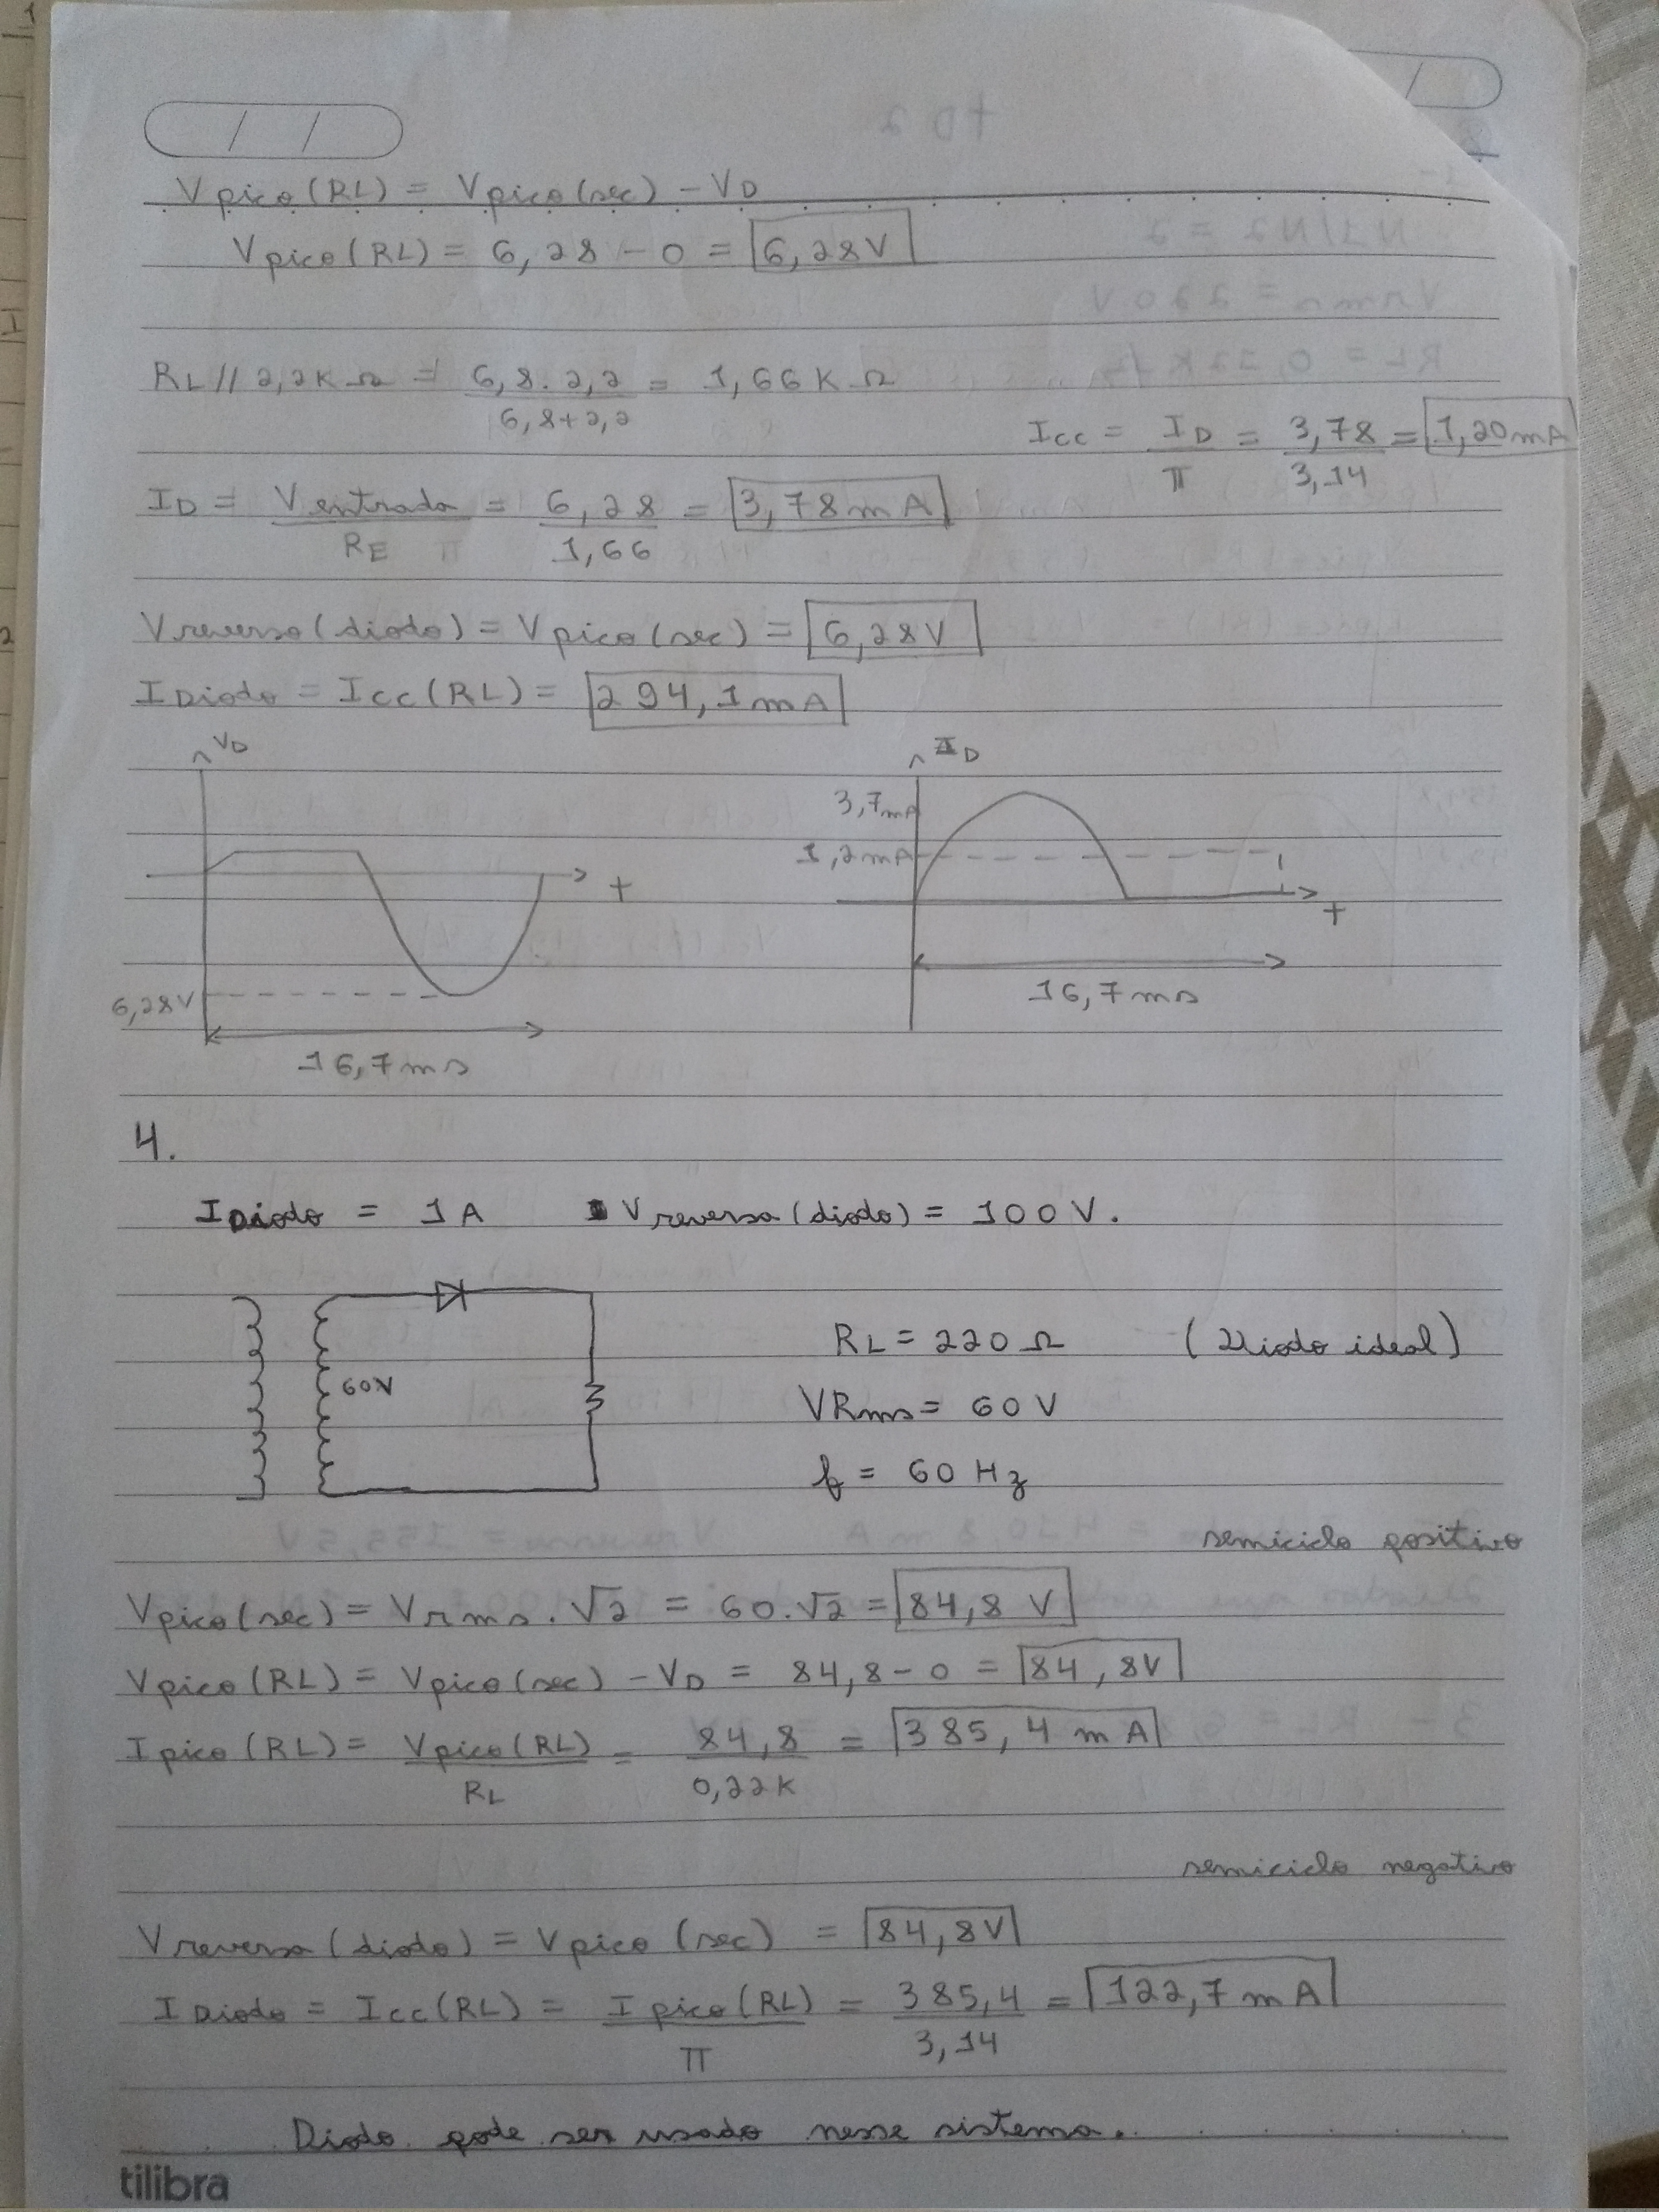 Vpico(RL) = Vpico(sec) - VD
Vpico(RL) = 6,28 - 0 = 6,28V
RL // 2,2K Ω = 6,8 . 2,2 / 6,8+2,2 = 1,66K Ω
Icc = ID / π = 3,78 / 3,14 = 1,20mA
ID = Ventrada / RE = 6,28 / 1,66 = 3,78mA
Vreversa(diodo) = Vpico(sec) = 6,28V
IDiodo = Icc(RL) = 294,1mA
VD
t
6,28V
16,7ms
ID
3,7mA
1,2mA
t
16,7ms
4.
IDiodo = 1A Vreversa(diodo) = 100V.
60V
RL = 220 Ω (Diodo ideal)
VRms = 60V
f = 60 Hz
semiciclo positivo
Vpico(sec) = Vrms . √2 = 60.√2 = 84,8 V
Vpico(RL) = Vpico(sec) - VD = 84,8 - 0 = 84,8V
Ipico(RL) = Vpico(RL) / RL = 84,8 / 0,22K = 385,4 mA
semiciclo negativo
Vreversa(diodo) = Vpico (sec) = 84,8V
IDiodo = Icc(RL) = Ipico(RL) / π = 385,4 / 3,14 = 122,7mA
Diodo pode ser usado nesse sistema.
tilibra